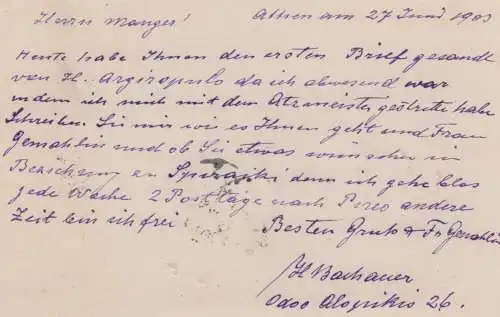 Herrn Manger! Athen am 27 Juni 1903
Heute habe Ihnen den ersten Brief gesandt
von H. Argiropulo da ich abwesend war
indem ich mich mit dem habe
Schreiben Sie mir wie es Ihnen geht und Frau
Gemahlin und ob Sie etwas wünschen in
Bezichung an denn ich gehe blos
jede Woche 2 Posttäge nach Pireo andere
Zeit bin ich frei Besten Gruß & Fr Gemahlin
H Bachauer
Odos 26.